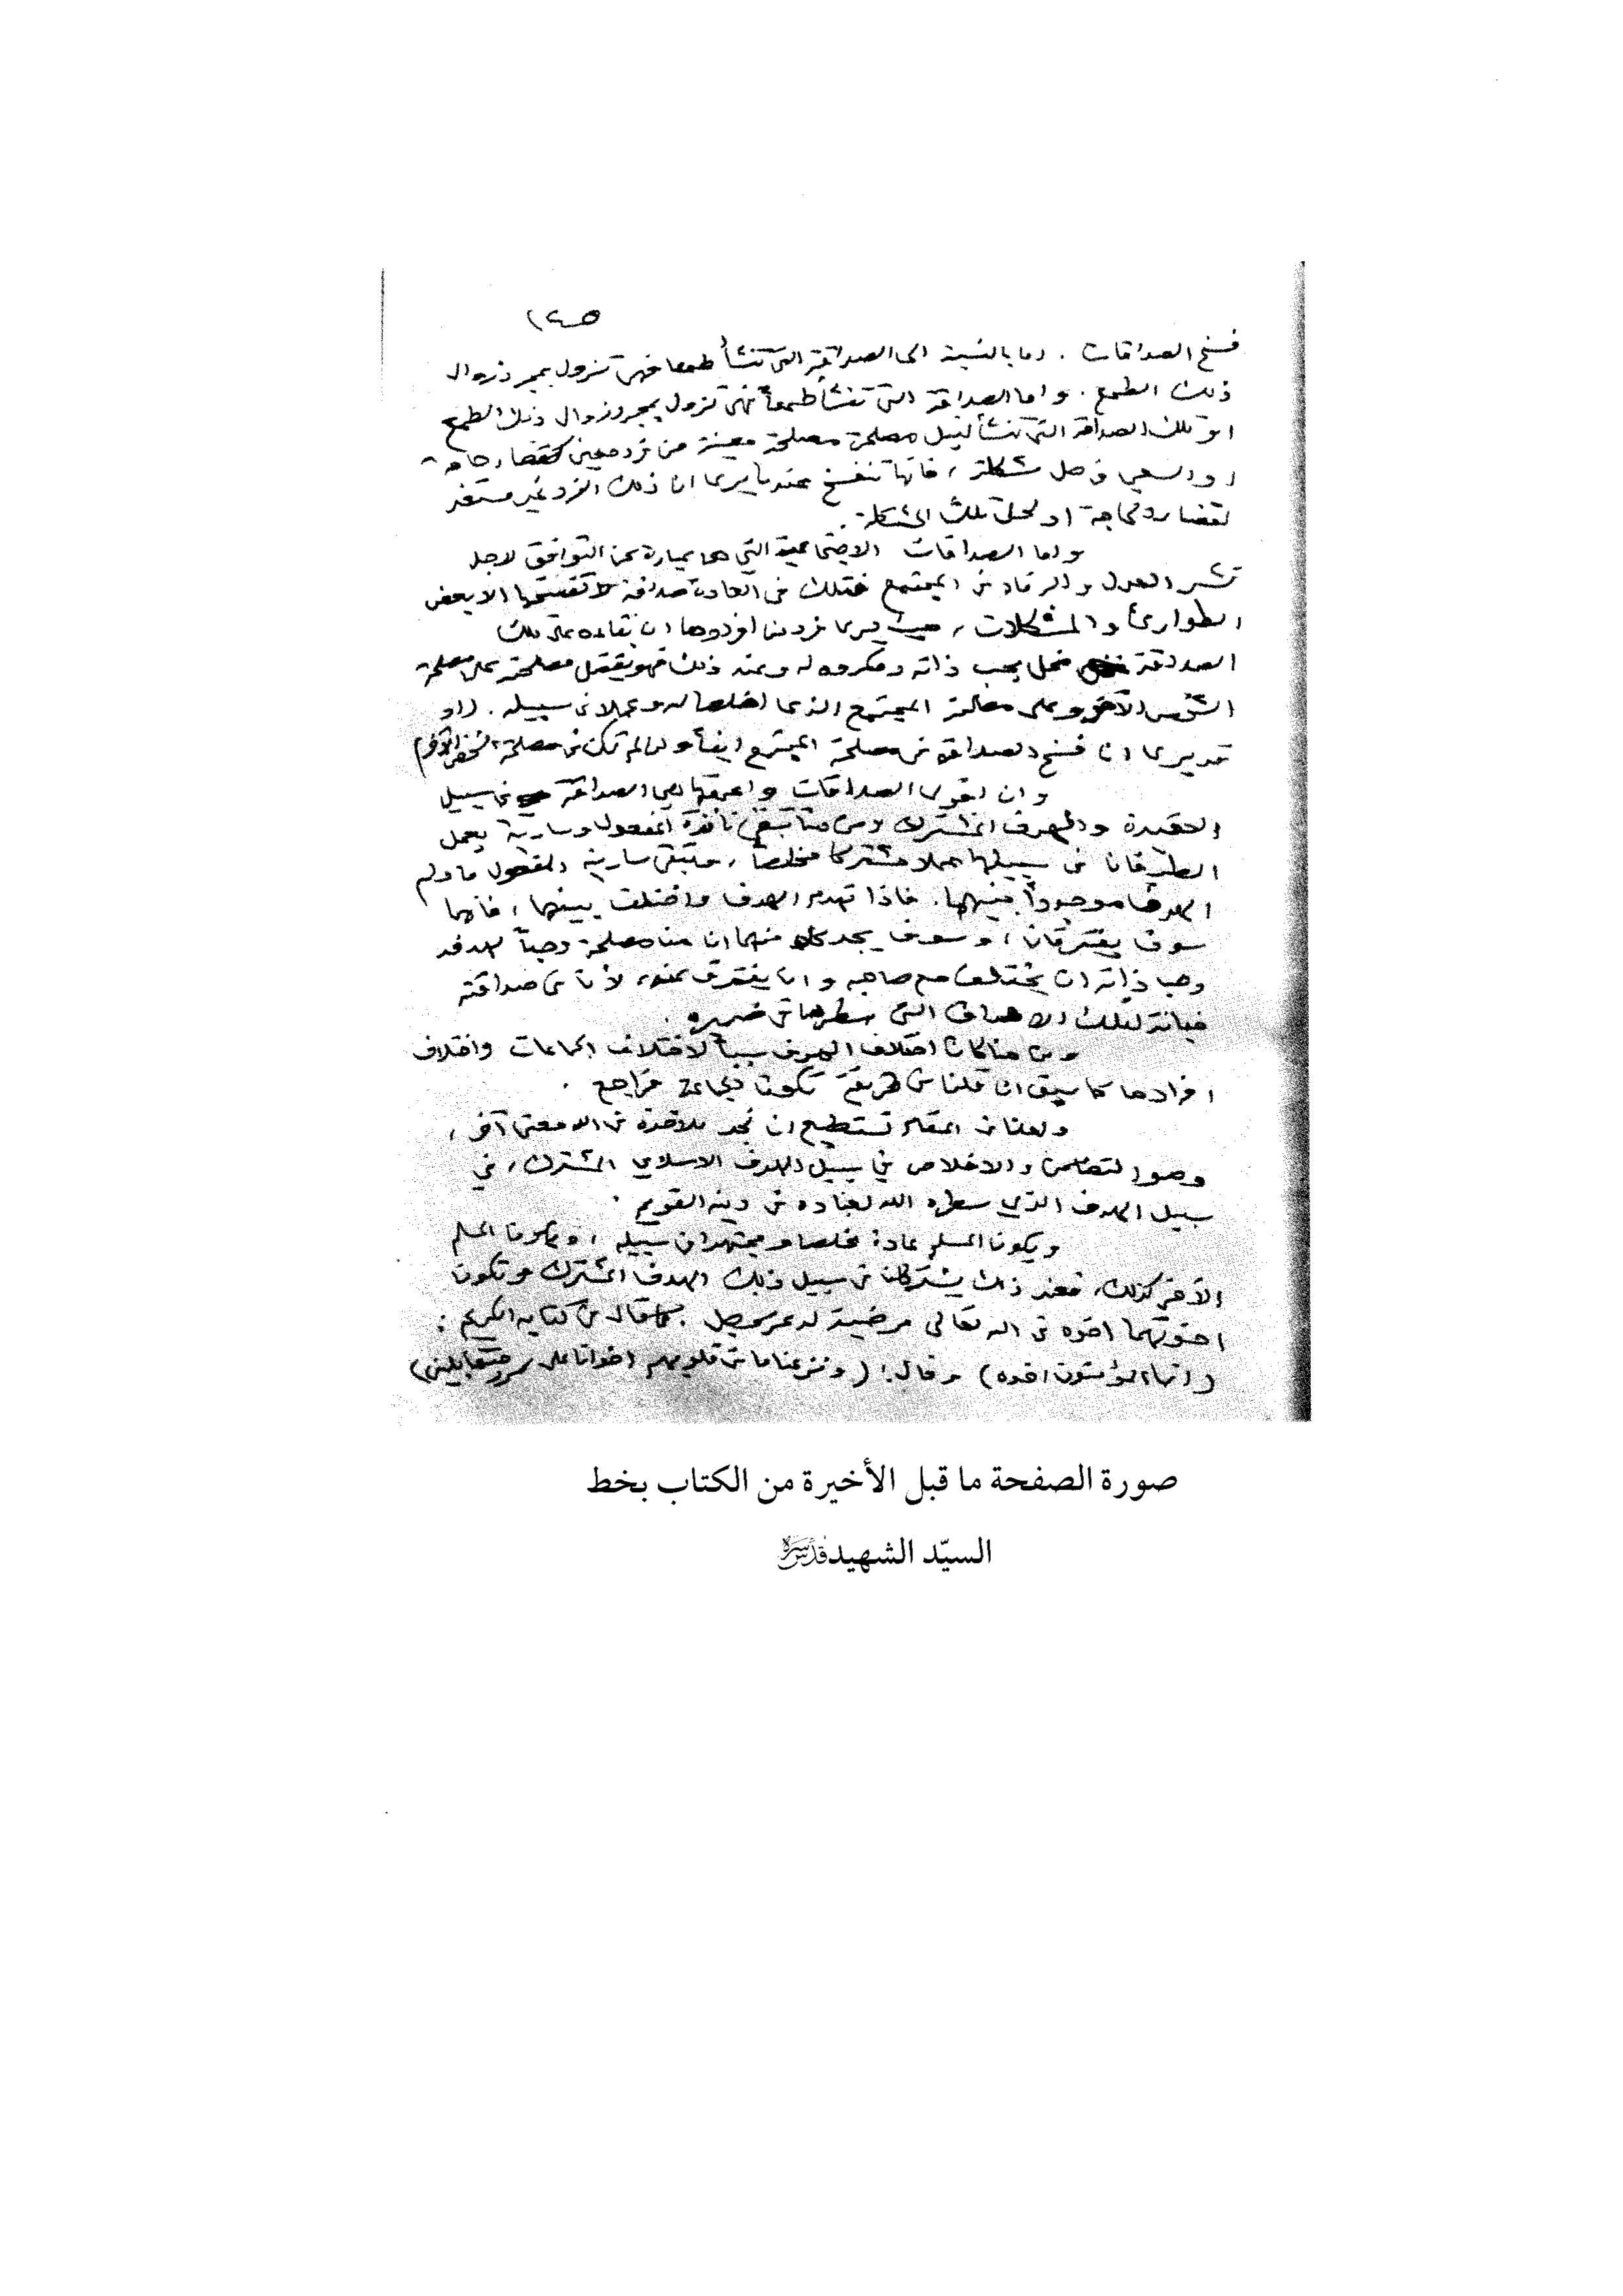 ١٤٥
فسخ الصداقات . اما بالنسبة الى الصداقة التي تنشأ طمعا فهي تزول بمجرد زوال
ذلك الطمع . واما الصداقة التي تنشأ طمعاً فهي تزول بمجرد زوال ذلك الطمع
او تلك الصداقة التي تنشأ لنيل مصلحة معينة من فرد معين كقضاء حاجة
او السعي في حل مشكلة ، فانها تنفسخ عندما يرى ان ذلك الفرد غير مستعد
لقضاء الحاجة او لحل تلك المشكلة .
واما الصداقات الاجتماعية التي هي عبارة عن التوافق لاجل
نشر العدل والرفاه في المجتمع فتلك في العادة صداقة لا تفسخها الا بعض
الطوارئ والمشكلات ، حيث يرى فرد من افرادها ان بقاءه على تلك
الصداقة مخل بحب ذاته ومكروه له وعند ذلك فهو يفضل مصلحته على مصلحة
الشخص الآخر وعلى مصلحة المجتمع الذي اخلصا له وعملا في سبيله . او
قد يرى ان فسخ الصداقة في مصلحة المجتمع ايضاً ولو لم تكن في مصلحة الشخص الآخر
وان اقوى الصداقات واعمقها هي الصداقة في سبيل
العقيدة والهدف المشترك ومن هنا تبقى نافذة المفعول وسارية يعمل
الطرفان في سبيلها عملا مشتركا مخلصاً ، وتبقى سارية المفعول ما دام
الهدف موجوداً بينهما . فاذا تهدم الهدف واختلف بينهما ، فانهما
سوف يفترقان ، وسوف يجد كل منهما ان من مصلحة وحباً لهدفه
وحب ذاته ان يختلف مع صاحبه وان يفترق عنه ، لأن في صداقته
خيانة لتلك الاهداف التي سطرها في ضميره .
ومن هنا كان اختلاف الهدف سبباً لاختلاف الجماعات واختلاف
افرادها كما سبق ان قلنا في طريقة تكون الجماعة فراجع .
ولعلنا في المقام نستطيع ان نجد للاخوة في الله معنى آخر ،
وهو التضامن والاخلاص في سبيل الهدف الاسلامي المشترك ، في
سبيل الهدف الذي سطره الله لعباده في دينه القويم .
ويكون المسلم عادة مخلصا ومجتهدا في سبيله ، ويكون المسلم
الآخر كذلك ، فعند ذلك يشتركان في سبيل ذلك الهدف المشترك وتكون
اخوتهما اخوة في الله تعالى مرضية له عز وجل . كما قال في كتابه الكريم :
(انما المؤمنون اخوة) وقال : (ونزعنا ما في قلوبهم اخوانا على سرر متقابلين)
صورة الصفحة ما قبل الأخيرة من الكتاب بخط
السيّد الشهيد قدّس سرّه